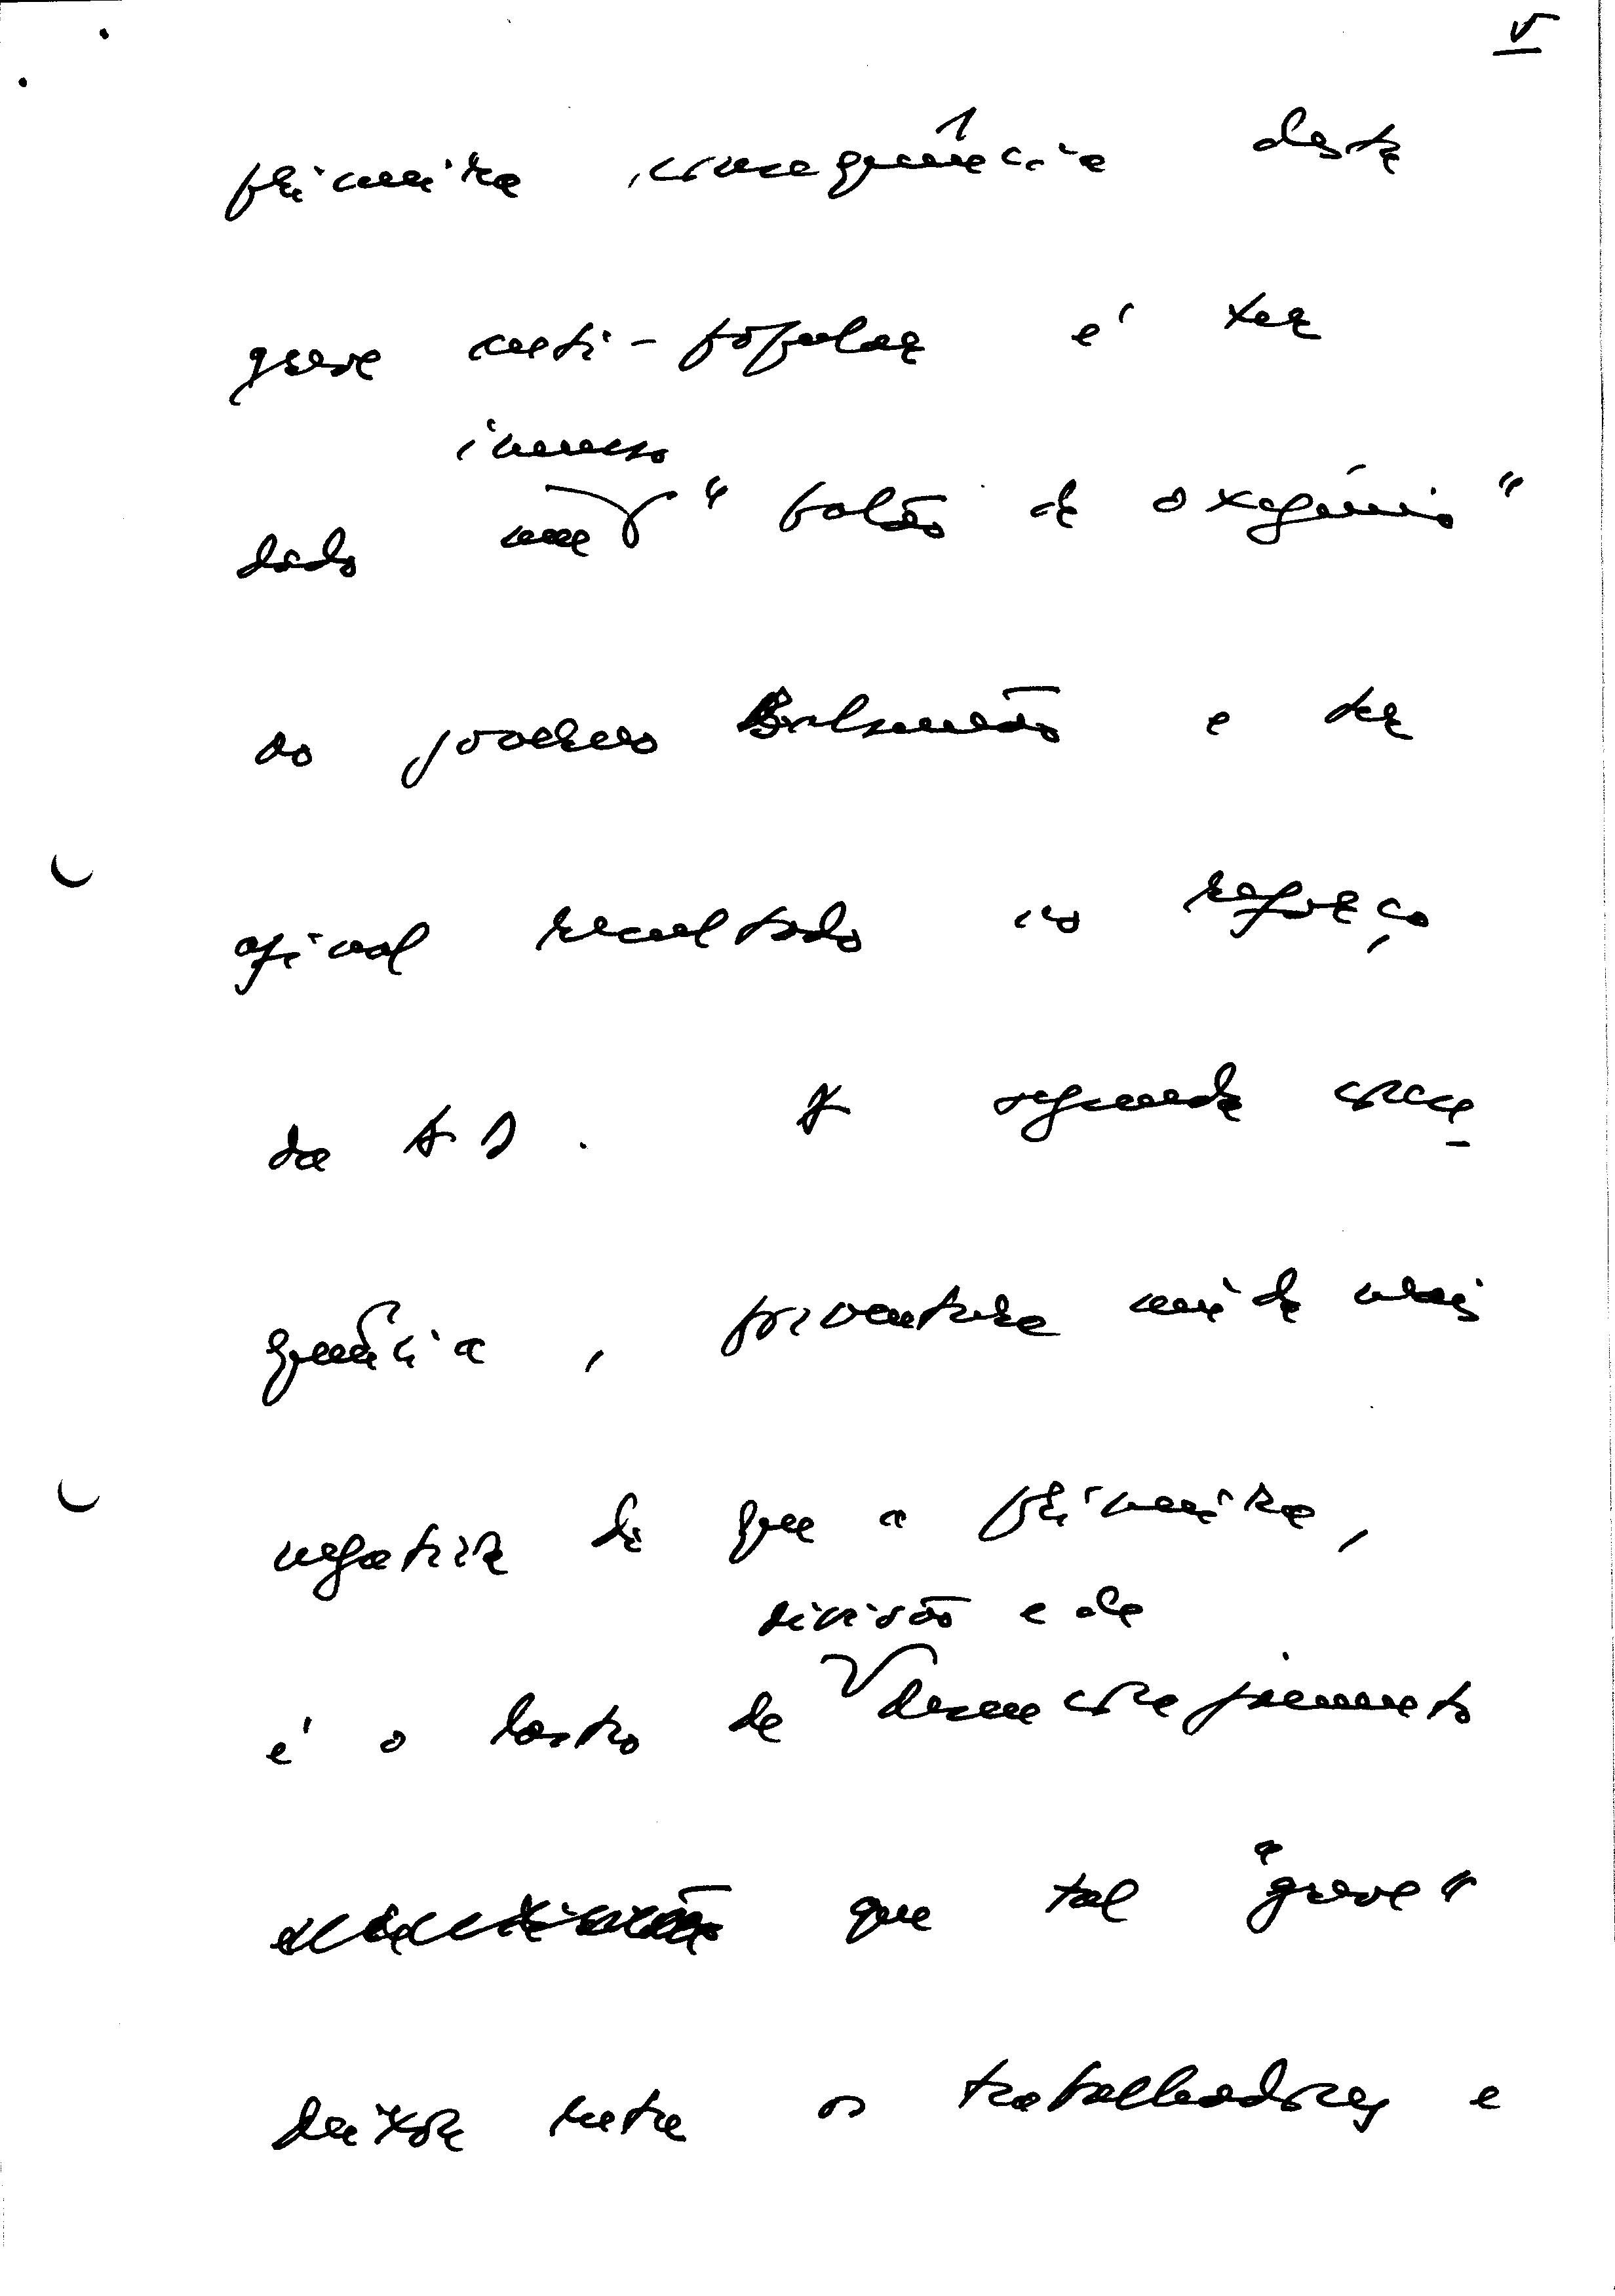 V
primeira consequência desta
greve anti-popular é ter
imenso
dado um "balão de oxegénio"
ao governo Balsemão e ter
afinal resultado no reforço
da AD. A segunda conse
quência, porventura ainda mais
negativa do que a primeira,
divisão e de
é o lastro de desencorajamento
que tal "greve"
deixou entre os trabalhadores e